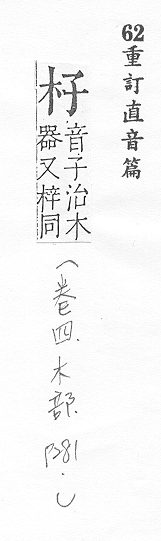 62重訂直音篇
杍
音子治木
器又梓同
(卷四.木部.P381.)